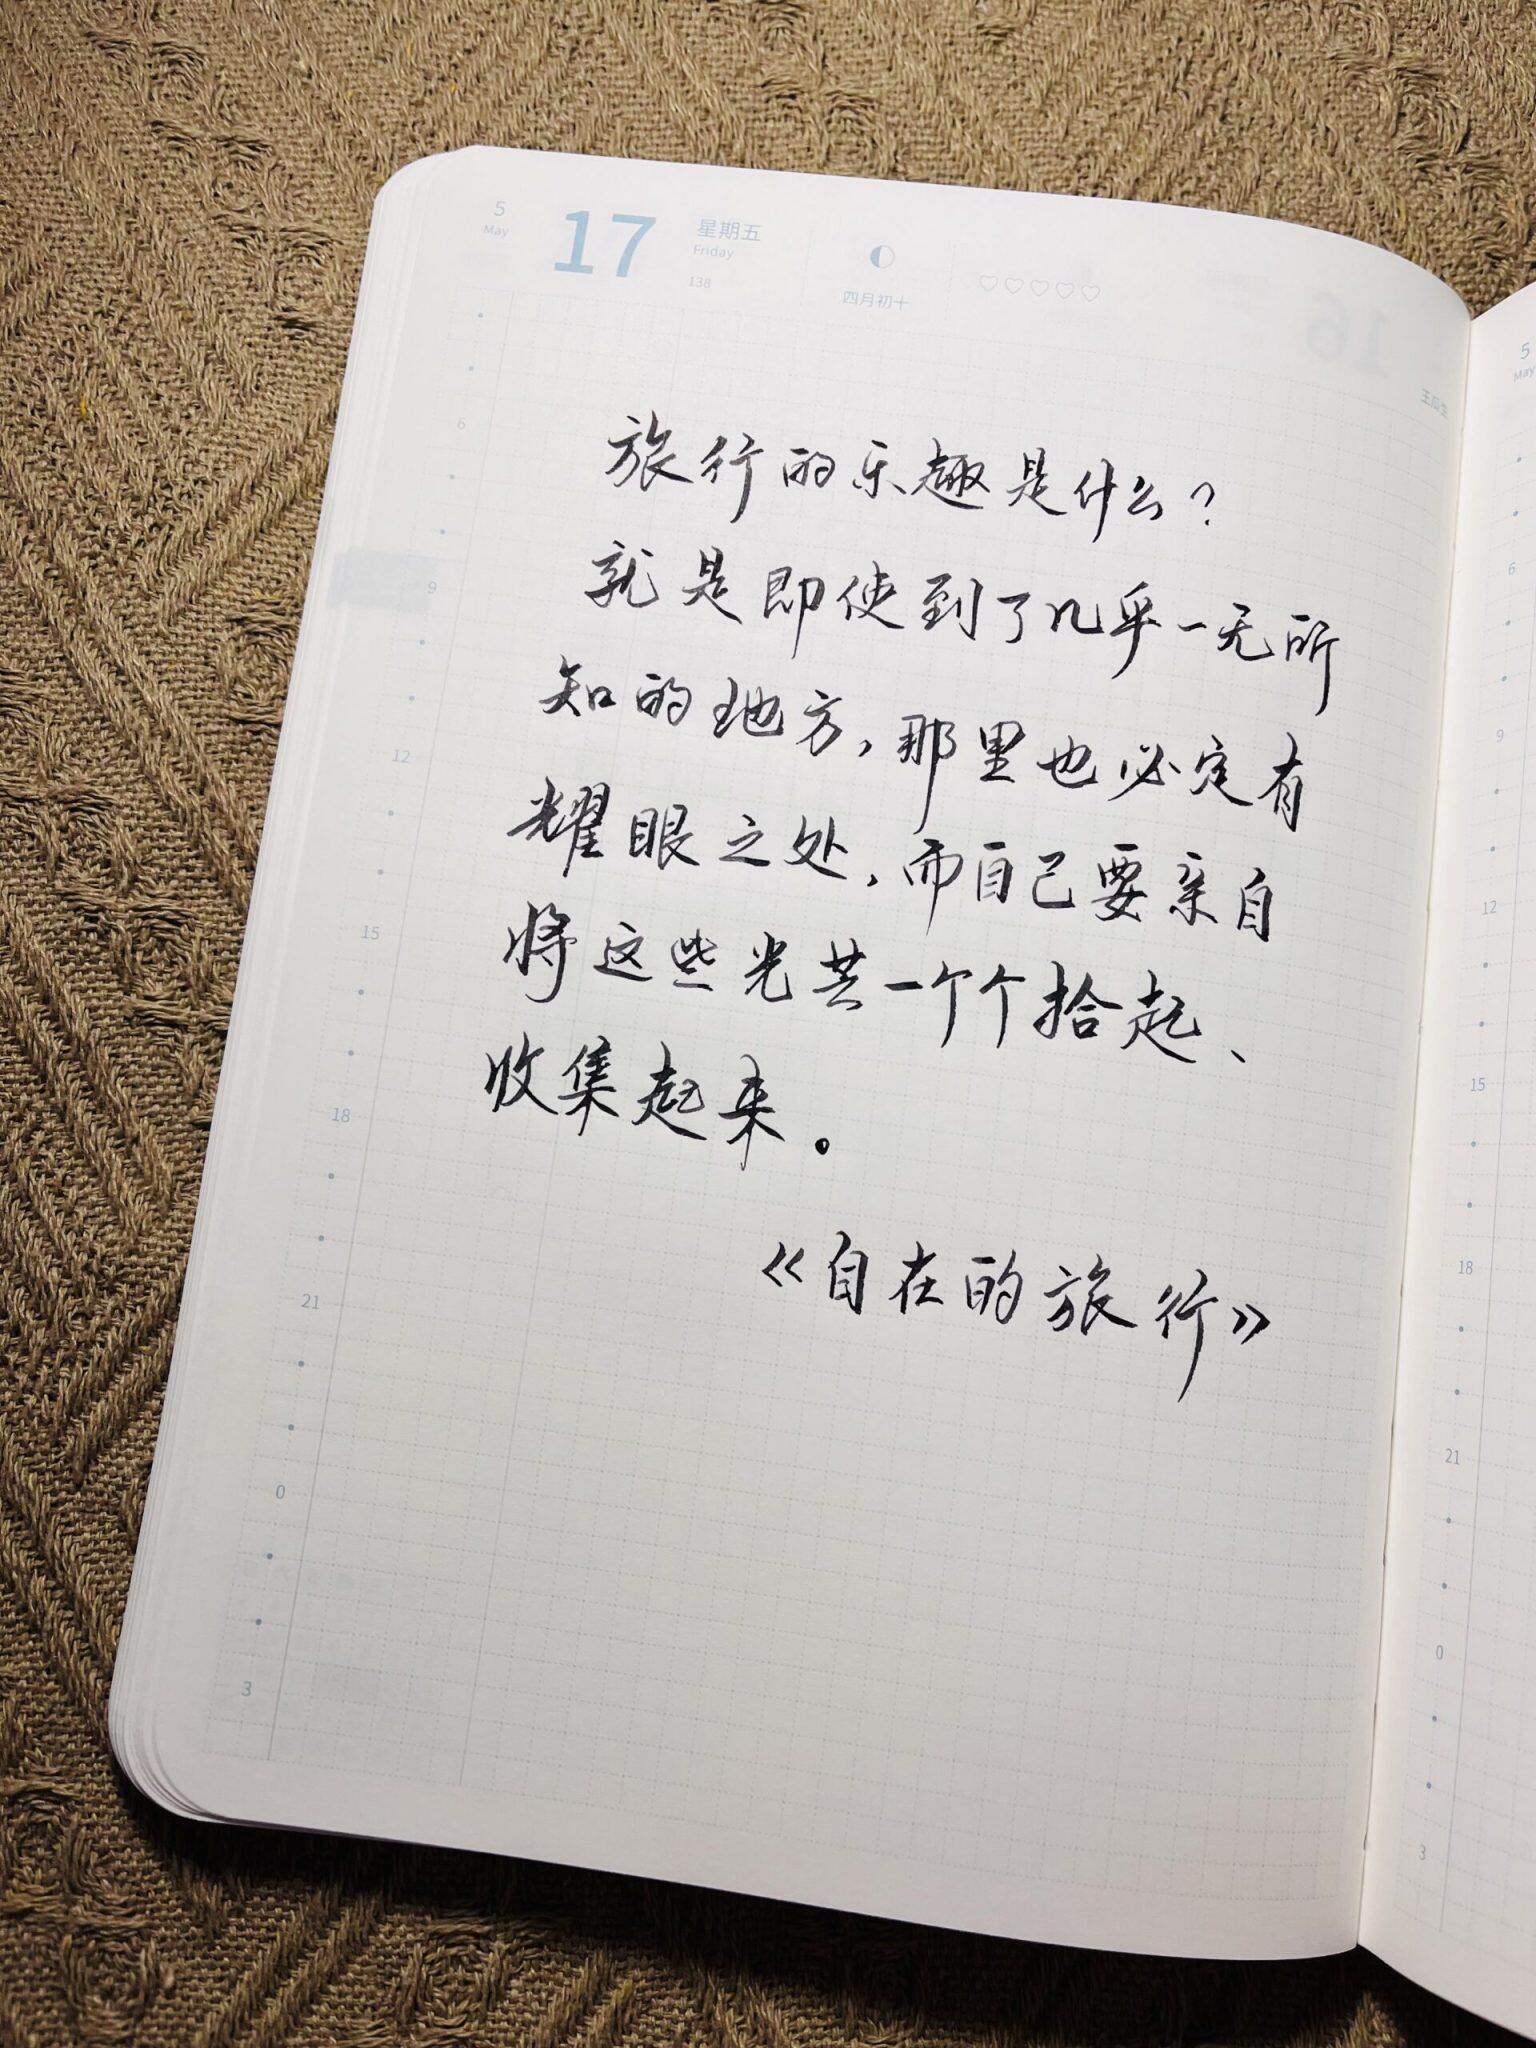 5
May
17
星期五
Friday
138
四月初十
旅行的乐趣是什么？
就是即使到了几乎一无所
知的地方，那里也必定有
耀眼之处，而自己要亲自
将这些光芒一个个拾起、
收集起来。
《自在的旅行》
6
9
12
15
18
21
0
3
16
5
May
6
9
12
15
18
21
0
3